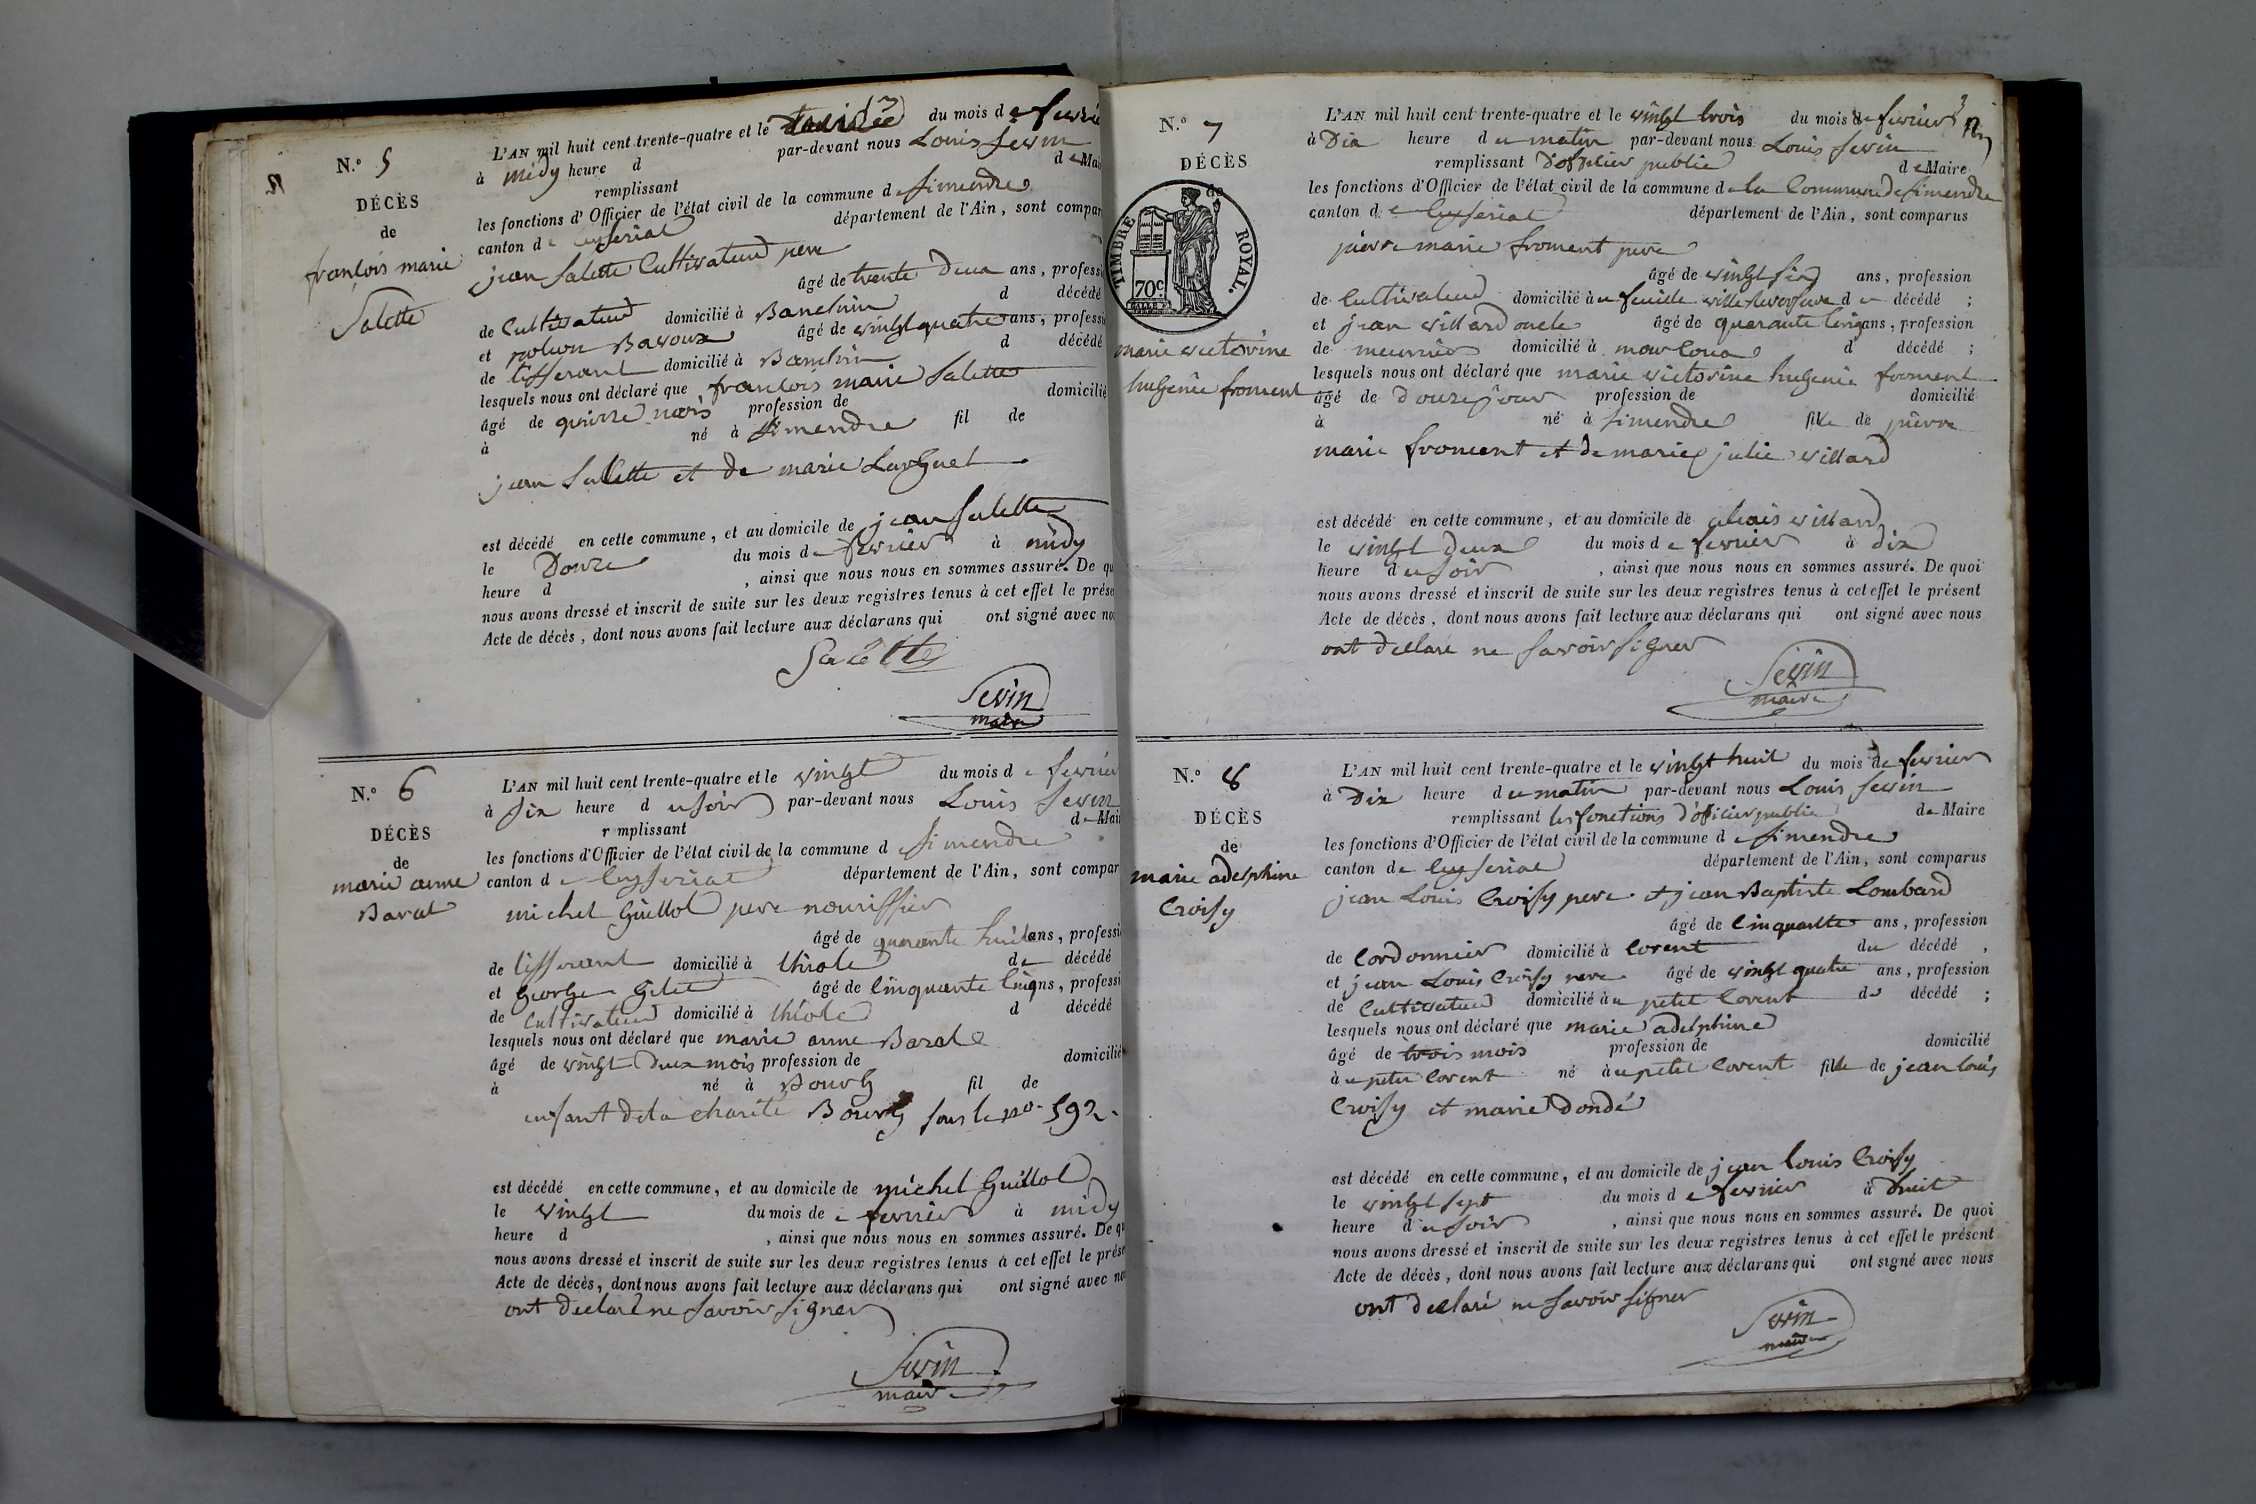 N.o 5
DÉCÈS
de
françois marie
Salette
L'AN mil huit cent trente-quatre et le du mois de fevrie
à midy heure d par-devant nous Louis Sevin
remplissant de Mai
les fonctions d'Officier de l'état civil de la commune de Simendre
canton de ceyseriat département de l'Ain, sont compar
jean Salette Cultivateur pere
âgé de trente Deux ans, professi
de Cultivateur domicilié à Banchin d décédé
et Bavoux âgé de vingt quatre ans, professi
de tisserant domicilié à Banchin d décédé
lesquels nous ont déclaré que françois marie Salette
âgé de quinze mois profession de domicilié
à né à Simendre fil de
jean Salette et de marie Larguet
est décédé en cette commune, et au domicile de jean Salette
le Douze du mois de fevrier à midy
heure d , ainsi que nous nous en sommes assuré. De qu
nous avons dressé et inscrit de suite sur les deux registres tenus à cet effet le prése
Acte de décès, dont nous avons fait lecture aux déclarans qui ont signé avec no
Salette
Sevin
maire
N.o 6
DÉCÈS
de
marie anne
Barat
L'AN mil huit cent trente-quatre et le vingt du mois de fevrier
à six heure du soir par-devant nous Louis Sevin
r mplissant de Mai
les fonctions d'Officier de l'état civil de la commune d Simendre
canton de Ceyseriat département de l'Ain, sont compar
michel Guillot pere nourissier
âgé de quarante huit ans, professi
de tisserant domicilié à thiole de décédé
et George Gilet âgé de Cinquante Cinq ns, professi
de Cultivateur domicilié à thiole d décédé
lesquels nous ont déclaré que marie anne Barat
âgé de vingt Deux mois profession de domicilié
à né à Bourg fil de
enfant de la charité Bourg sous le no. 592.
est décédé en cette commune, et au domicile de michel Guillot
le vingt du mois de fevrier à midy
heure d , ainsi que nous nous en sommes assuré. De qu
nous avons dressé et inscrit de suite sur les deux registres tenus à cet effet le prése
Acte de décès, dont nous avons fait lecture aux déclarans qui ont signé avec no
ont declaré ne savoir signer
Sevin
maire
N.o 7
DÉCÈS
de
TIMBRE ROYAL.
70c
marie victorine
hugenie froment
L'AN mil huit cent trente-quatre et le vingt trois du mois de fevrier
à Dix heure du matin par-devant nous Louis Sevin
remplissant D'officier public de Maire
les fonctions d'Officier de l'état civil de la commune de la Commune de Simendre
canton de Ceyseriat département de l'Ain, sont comparus
pierre marie froment pere
âgé de vingt six ans, profession
de Cultivateur domicilié à d décédé ;
et jean villard oncle âgé de quarante Cinq ans, profession
de meunier domicilié à d décédé ;
lesquels nous ont déclaré que marie victorine hugenie froment
âgé de Douze jour profession de domicilié
à né à Simendre fille de pierre
marie froment et de marie julie villard
est décédé en cette commune, et au domicile de villard
le vingt Deux du mois de fevrier à dix
heure du soir , ainsi que nous nous en sommes assuré. De quoi
nous avons dressé et inscrit de suite sur les deux registres tenus à cet effet le présent
Acte de décès, dont nous avons fait lecture aux déclarans qui ont signé avec nous
ont declaré ne savoir signer
Sevin
maire
N.o 8
DÉCÈS
de
marie adelphine
Croisy
L'AN mil huit cent trente-quatre et le vingt huit du mois de fevrier
à Dix heure du matin par-devant nous Louis Sevin
remplissant les fonctions d'officier public de Maire
les fonctions d'Officier de l'état civil de la commune de Simendre
canton de Ceyseriat département de l'Ain, sont comparus
jean Louis Croisy pere et jean Baptiste Lombard
âgé de Cinquante ans, profession
de Cordonnier domicilié à Corent du décédé ,
et jean Louis Croisy pere âgé de vingt quatre ans, profession
de Cultivateur domicilié au petit Corent de décédé ;
lesquels nous ont déclaré que marie adelphine
âgé de trois mois profession de domicilié
au petit Corent né au petit Corent fille de jean louis
Croisy et marie Dondé
est décédé en cette commune, et au domicile de jean louis Croisy
le vingt sept du mois de fevrier à huit
heure du soir , ainsi que nous nous en sommes assuré. De quoi
nous avons dressé et inscrit de suite sur les deux registres tenus à cet effet le présent
Acte de décès, dont nous avons fait lecture aux déclarans qui ont signé avec nous
ont declaré ne savoir signer
Sevin
maire